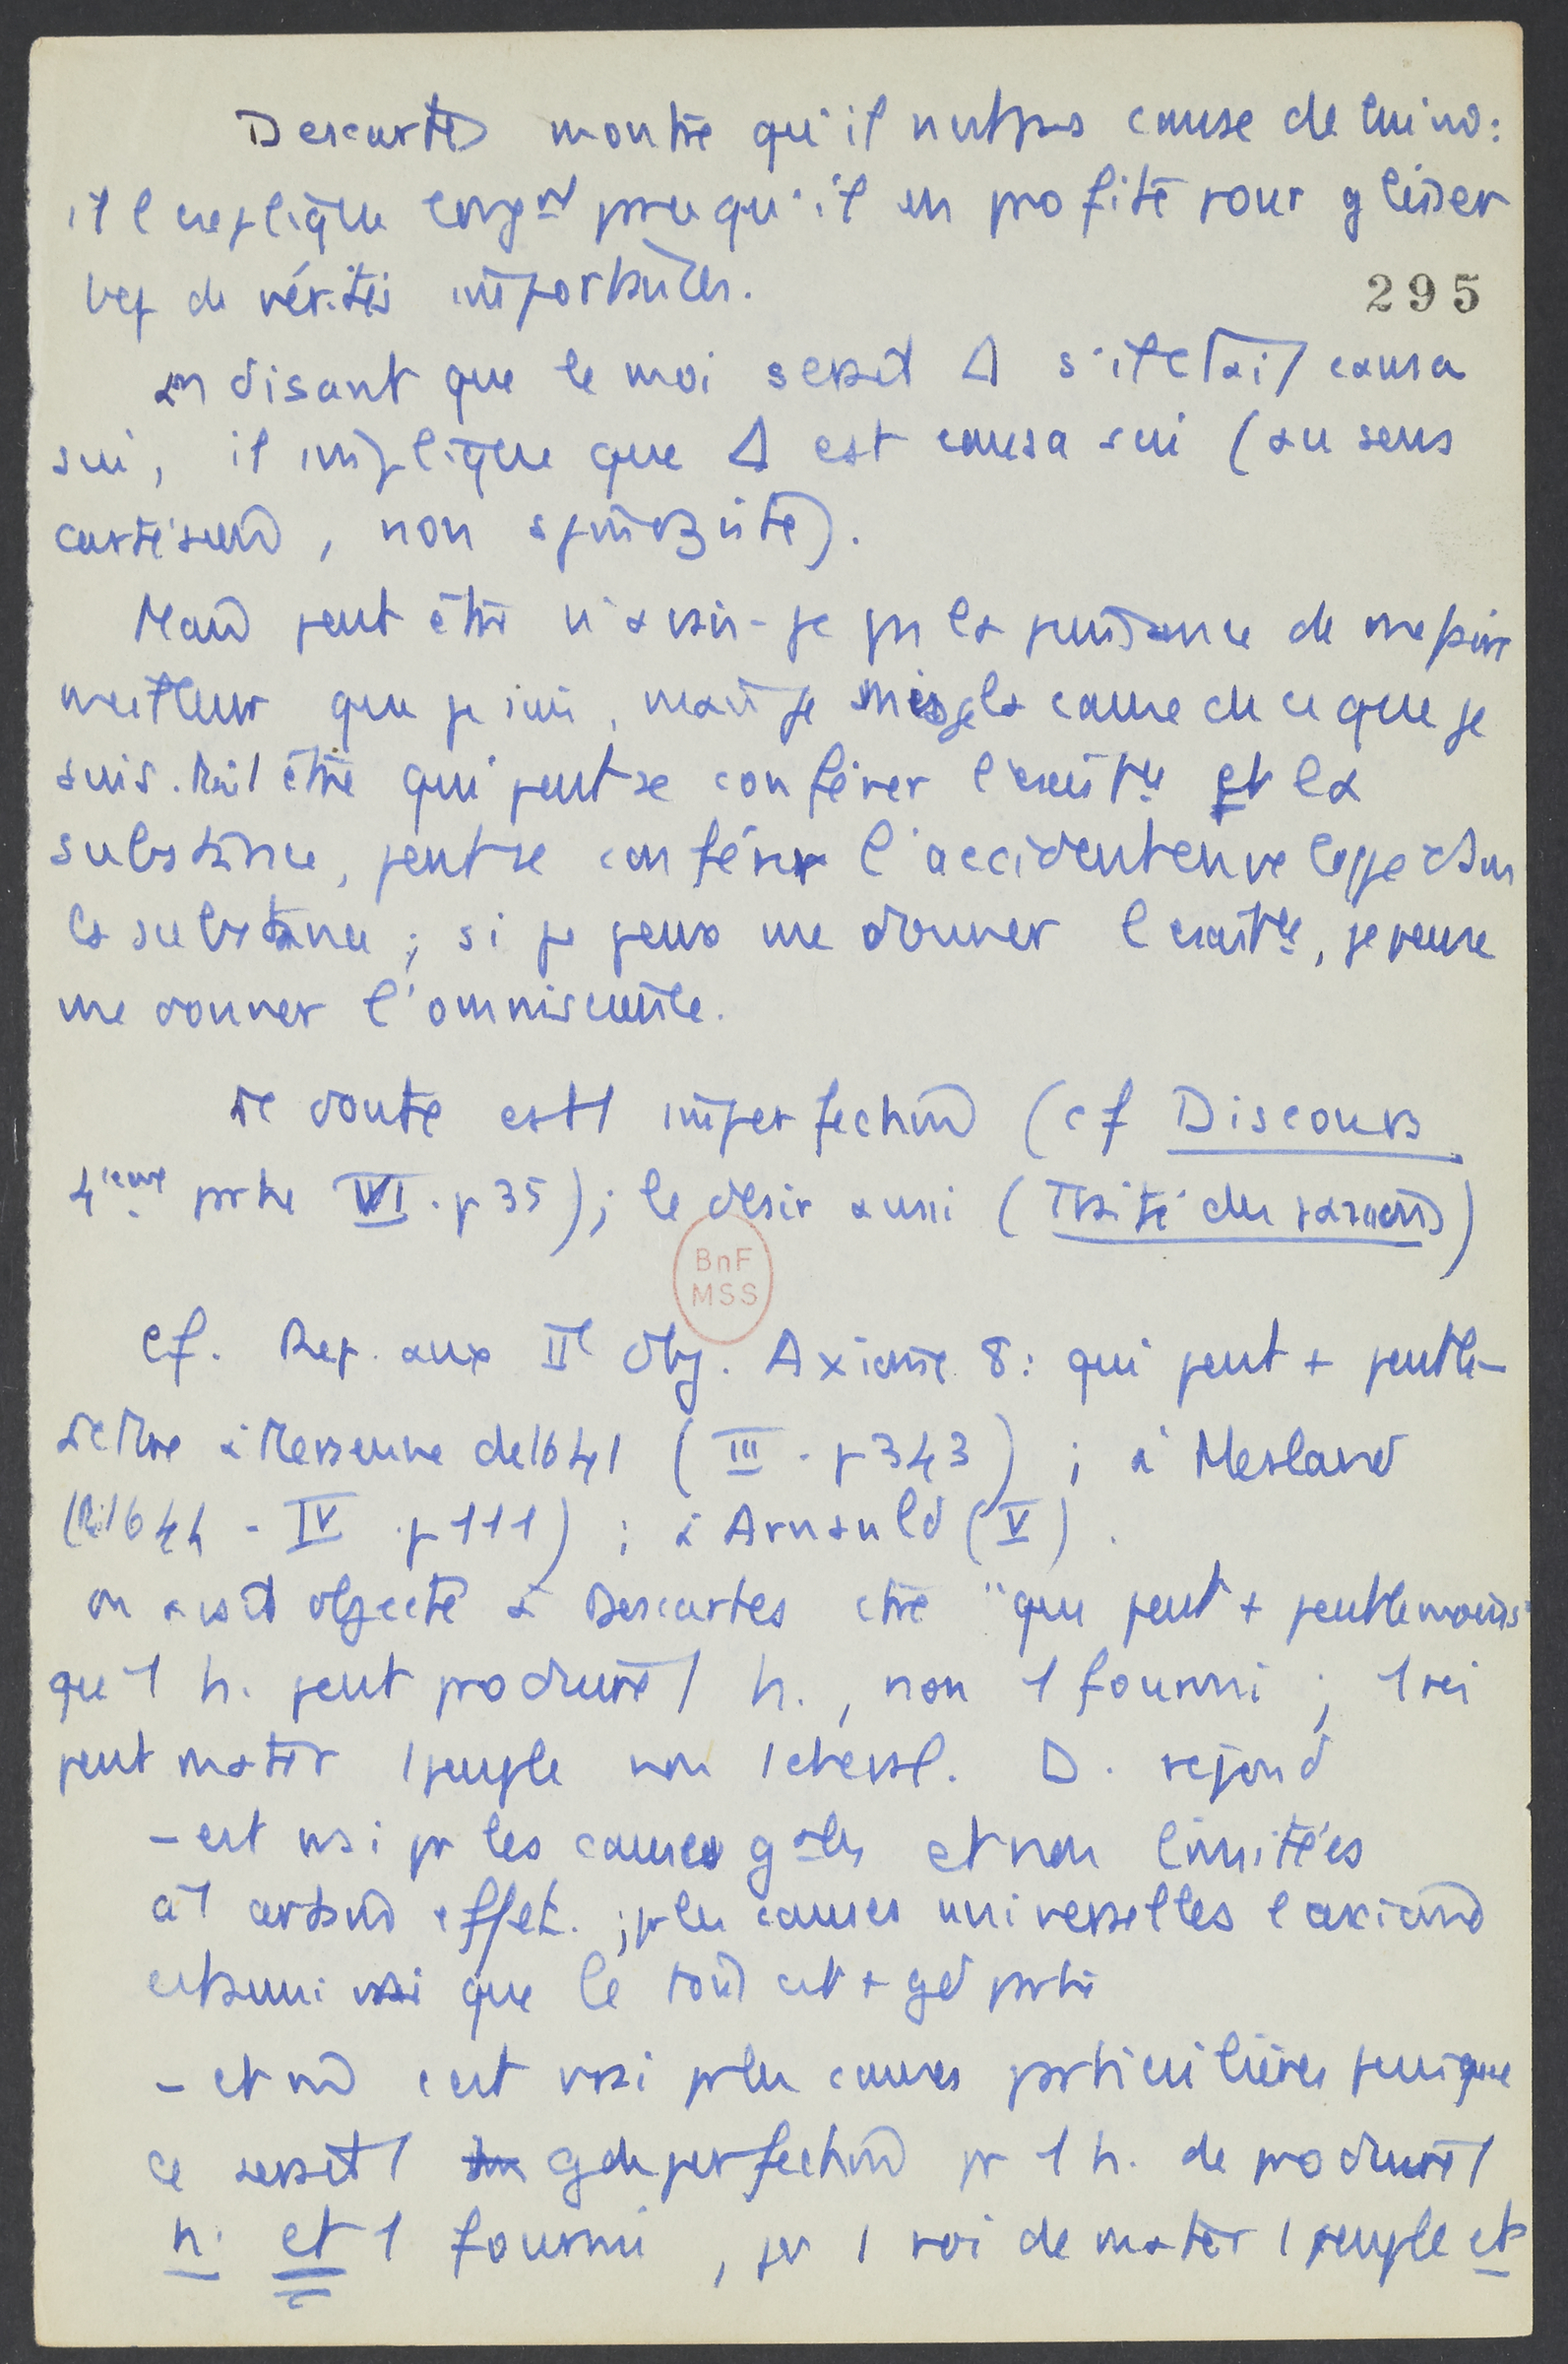 Descartes montre qu'il n'est pas cause de lui mê:
il l'explique longnt parce qu'il en profite pour glisser
bcp de vérités importantes.
295
en disant que le moi serait Δ s'il était causa
sui, il implique que Δ est causa sui (au sens
cartésien, non spinoziste).
Mais peut être n'avais-je pas la puissance de me faire
meilleur que je suis, mais je suis la cause de ce que je
suis. Mais 1 être qui peut se conférer l'existce et la
substance, peut se conférer l'accident enveloppé dans
la substance ; si je peux me donner l'existce, je peux
me donner l'omniscience.
Le doute est 1 imperfection (cf Discours
4ième partie VI. p 35) ; le désir aussi (Traité des passions)
BnF
MSS
Cf. Rep. aux IIe Obj. Axiome 8 : qui peut + peut le -
Lettre à Mersenne de 1641 (III. p 343) ; à Mesland
(1644 - IV p 111) ; à Arnauld (V).
on avait objecté à Descartes ctre "qui peut + peut le moins"
que 1 h. peut produire 1 h., non 1 fourmi ; 1 roi
peut mater 1 peuple non 1 cheval. D. répond
- est vrai pr les causes gales et non limitées
à 1 certain effet. ; pr les causes universelles l'axiome
est aussi vrai que le tout est + gd partie
- et non c'est vrai pr les causes particulières puisque
ce serait 1 gde perfection pr 1 h. de produire 1
h. et 1 fourmi, pr 1 roi de mater 1 peuple et